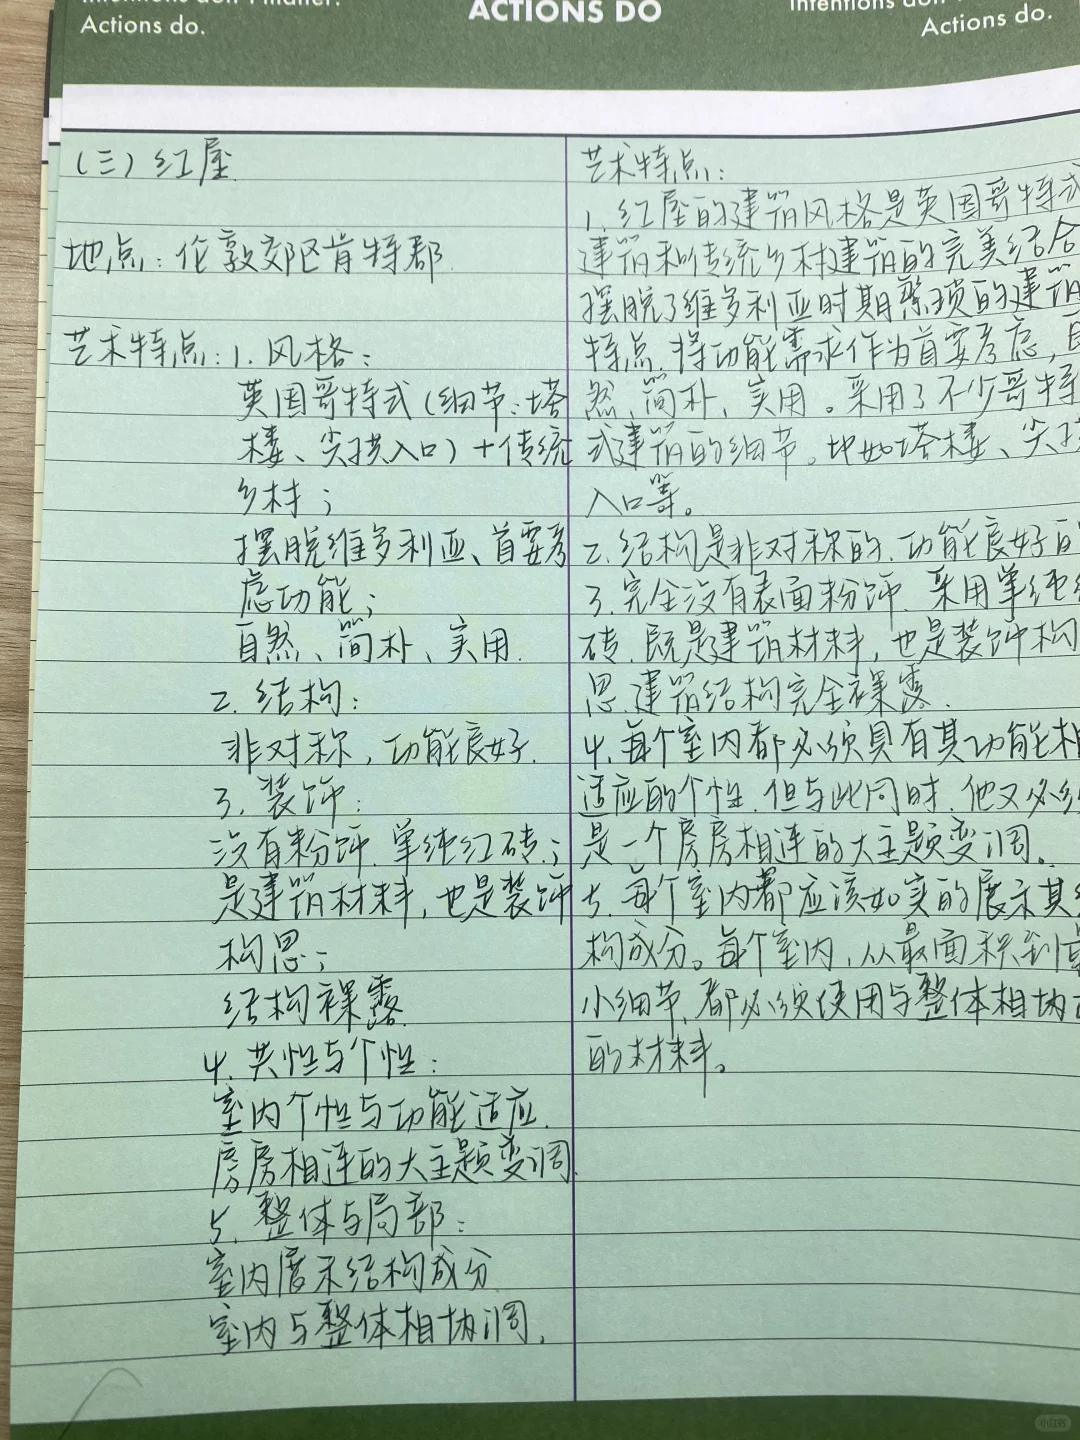 Actions do.
ACTIONS DO
Actions do.
(三)红屋
地点:伦敦郊区肯特郡
艺术特点:1.风格:
英国哥特式(细节:塔
楼、尖拱入口)+传统
乡村;
摆脱维多利亚、首要考
虑功能;
自然、简朴、实用.
2.结构:
非对称,功能良好.
3.装饰:
没有粉饰.单纯红砖.;
是建筑材料,也是装饰
构思;
结构裸露.
4.共性与个性:
室内个性与功能适应.
房房相连的大主题变调.
5.整体与局部:
室内展示结构成分
室内与整体相协调.
艺术特点:
1.红屋的建筑风格是英国哥特式
建筑和传统乡村建筑的完美结合
摆脱了维多利亚时期繁琐的建筑
特点.将功能需求作为首要考虑,自
然、简朴、实用。采用了不少哥特
式建筑的细节。比如塔楼、尖拱
入口等。
2.结构是非对称的.功能良好
3.完全没有表面粉饰.采用单纯
砖.既是建筑材料,也是装饰构
思.建筑结构完全裸露.
4.每个室内都必须具有其功能相
适应的个性.但与此同时.他又必须
是一个房房相连的大主题变调。
5.每个室内都应该如实的展示其
构成分。每个室内,从最面积到最
小细节.都必须使用与整体相协
的材料。
小红书